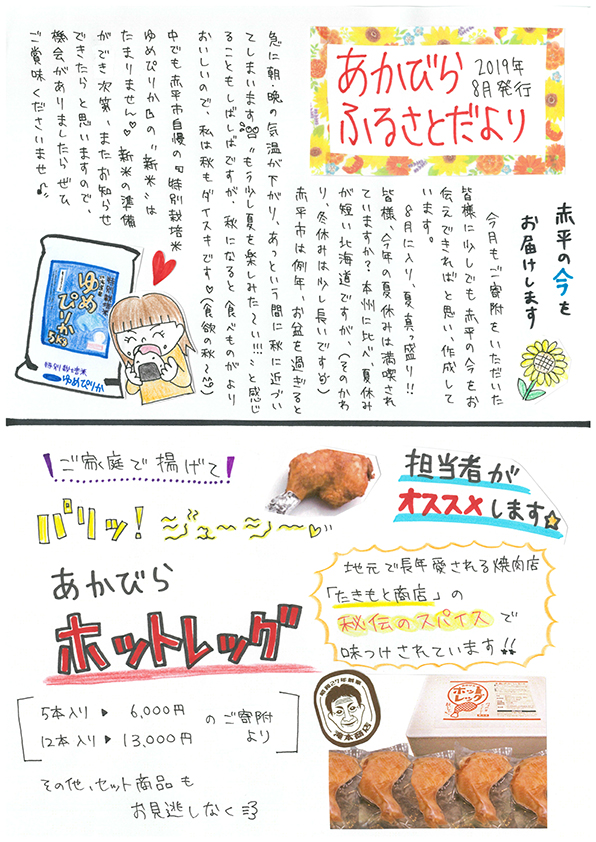 あかびら
ふるさとだより
2019年
8月発行
赤平の今を
お届けします
今月もご寄附をいただいた
皆様に少しでも赤平の今をお
伝えできればと思い、作成して
います。
8月に入り、夏真っ盛り!!
皆様、今年の夏休みは満喫され
ていますか?本州に比べ、夏休み
が短い北海道ですが、(そのかわ
り、冬休みは少し長いです)
赤平市は例年、お盆を過ぎると
急に朝・晩の気温が下がり、あっという間に秋に近づい
てしまいます"もう少し夏を楽しみた〜い!!!"と感じ
ることもしばしばですが、秋になると食べものがより
おいしいので、私は秋もダイスキです♡(食欲の秋〜)
中でも赤平市自慢の『特別栽培米
ゆめぴりか』の"新米"は
たまりません♡新米の準備
ができ次第、またお知らせ
できたらと思いますので、
機会がありましたらぜひ
ご賞味くださいませ♪
特別栽培米
ゆめぴりか
5kg
特別栽培米
ゆめぴりか
ご家庭で揚げて
パリッ!ジューシー♡
担当者が
オススメします☆
あかびら
ホットレッグ
地元で長年愛される焼肉店
「たきもと商店」の
秘伝のスパイスで
味つけされています!!
5本入り▶6,000円
12本入り▶13,000円
のご寄附
より
その他、セット商品も
お見逃しなく
昭和27年創業
滝本商店
ホット
レッグ